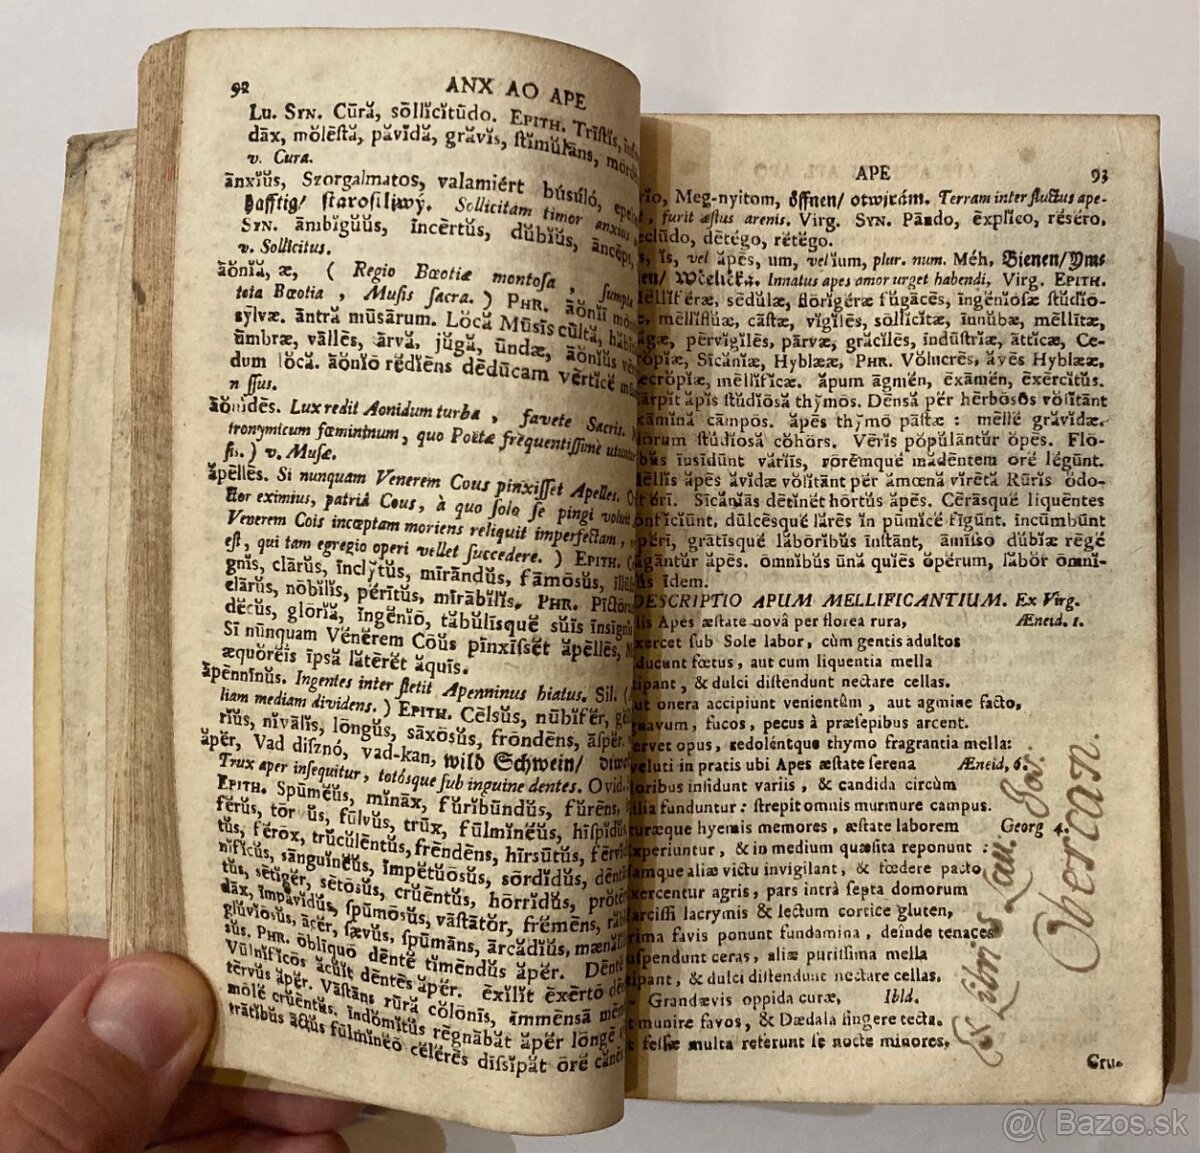 92
ANX AO APE
Lu. SYN. Cūră, sōllĭcĭtūdo. EPITH. Trīstĭs,
dāx, mŏlēstă, păvĭdă, grăvĭs, stĭmŭlāns,
v. Cura.
ānxĭŭs, Szorgalmatos, valamiért búsúló,
Hafftig/ starosiliwý. Sollicitam timor anxius
SYN. āmbĭgŭŭs, īncērtŭs, dŭbĭŭs, āncēps,
v. Sollicitus.
āŏnĭă, æ, ( Regio Bœotiæ montosa,
teta Bœotia, Musis sacra. ) PHR. āŏnĭī
sylvæ. āntră mūsārum. Lŏcă Mūsīs cūltă,
ūmbræ, vāllēs, ārvă, jŭgă, ūndæ, āŏnĭŭs
dum lŏcă. āŏnĭō rĕdĭēns dēdūcam vērtĭcĕ
āŏnĭdēs. Lux redit Aonidum turba, favete Sacris.
tronymicum fœmininum, quo Poëtæ frequentissimè
v. Musæ.
ăpēllēs. Si nunquam Venerem Cous pinxisset Apelles.
eximius, patriâ Cous, à quo solo se pingi
Venerem Cois inceptam moriens reliquit imperfectam,
est, qui tam egregio operi vellet succedere. ) EPITH.
gnĭs, clārŭs, īnclўtŭs, mīrāndŭs, fāmōsŭs,
clārŭs, nōbĭlĭs, pĕrītŭs, mīrābĭlĭs. PHR.
dĕcŭs, glōrĭă, īngĕnĭō, tăbŭlīsquĕ sŭīs
Sī nūnquam Vĕnĕrem Cōŭs pīnxīssĕt ăpēllēs,
æquŏrĕīs īpsă lătērĕt ăquīs.
āpēnnīnŭs. Ingentes inter stetit Apenninus hiatus. Sil.
liam mediam dividens. ) EPITH. Cēlsŭs, nūbĭfĕr,
rĭŭs, nĭvālĭs, lōngŭs, sāxōsŭs, frōndēns, āspĕr.
ăpĕr, Vad disznó, vad-kan, wild Schwein/
Trux aper insequitur, totósque sub inguine dentes. Ovid.
EPITH. Spūmĕŭs, mĭnāx, fŭrĭbūndŭs, fŭrēns,
fĕrŭs, fūlvŭs, trūx, fūlmĭnĕŭs, hīspĭdŭs,
tŭs, fĕrōx, trŭcŭlēntŭs, frēndēns, hīrsūtŭs,
nĭfĭcŭs, sānguĭnĕŭs, īmpĕtŭōsŭs, sōrdĭdŭs,
tŭs, sētĭgĕr, sētōsŭs, crŭēntŭs, hōrrĭdŭs,
dāx, īmpăvĭdŭs, spūmōsŭs, vāstātŏr, frĕmēns,
ācĕr, sævŭs, spūmāns, ārcădĭŭs,
sŭs. PHR. ōblīquō dēntĕ tĭmēndŭs ăpĕr. Dēntĕ
Vūlnĭfĭcōs ăcŭĭt dēntēs ăpĕr. ēxĭlĭt ēxērtō
tērvŭs ăpĕr. Vāstāns rūră cŏlōnĭs, īmmēnsă
mōlĕ crŭēntŭs, īndŏmĭtŭs rēgnābăt ăpĕr lōngē
fūlmĭnĕō cĕlĕrēs dīssĭpăt ōrĕ cănēs
APE
93
Meg-nyitom, öffnen/ otwirám. Terram inter fluctus ape-
furit æstus arenis. Virg. SYN. Pāndo, ēxplĭco, rĕsĕro,
dētĕgo, rĕtĕgo.
is, vel ăpēs, um, vel ium, plur. num. Méh, Bienen/
Wčelička. Innatus apes amor urget habendi, Virg. EPITH.
sēdŭlæ, flōrĭgĕræ fŭgācēs, īngĕnĭōsæ stŭdĭō-
mēllĭflŭæ, cāstæ, vĭgĭlēs, sōllĭcĭtæ, īnnŭbæ, mēllītæ,
pērvĭgĭlēs, pārvæ, grăcĭlēs, īndūstrĭæ, āttĭcæ, Ce-
Sīcănĭæ, Hyblææ, PHR. Vŏlŭcrēs, ăvēs Hyblææ,
mēllĭfĭcæ. ăpum āgmĕn, ēxāmĕn, ēxērcĭtŭs.
ăpĭs stŭdĭōsă thўmōs. Dēnsă pĕr hērbōsōs vŏlĭtānt
cāmpōs. ăpēs thўmō pāstæ: mēllĕ grăvĭdæ.
stŭdĭōsă cŏhōrs. Vērĭs pŏpŭlāntŭr ŏpēs. Flō-
īnsīdūnt vărĭīs, rōrēmquĕ mădēntem ōrĕ lĕgūnt.
ăpēs ăvĭdæ vŏlĭtānt pĕr ămœnă vĭrētă Rūrĭs ŏdō-
Sīcănĭās dētĭnĕt hōrtŭs ăpēs. Cērāsquĕ lĭquēntes
dūlcēsquĕ lărēs īn pūmĭcĕ fīgūnt. īncūmbūnt
grātīsquĕ lăbōrĭbŭs īnstānt, āmīsso dŭbĭæ rēgĕ
ăpēs. ōmnĭbŭs ūnă quĭēs ŏpĕrum, lăbŏr ōmnĭ-
idem.
DESCRIPTIO APUM MELLIFICANTIUM. Ex Virg.
Apes æstate novâ per florea rura, Æneid. 1.
sub Sole labor, cùm gentis adultos
fœtus, aut cum liquentia mella
& dulci distendunt nectare cellas.
onera accipiunt venientûm, aut agmine facto,
fucos, pecus à præsepibus arcent.
opus, redoléntque thymo fragrantia mella:
veluti in pratis ubi Apes æstate serena Æneid, 6.
insidunt variis, & candida circùm
funduntur: strepit omnis murmure campus.
hyemis memores, æstate laborem Georg 4.
& in medium quæsita reponunt:
aliæ victu invigilant, & fœdere pacto
agris, pars intrà septa domorum
lacrymis & lectum cortice gluten,
favis ponunt fundamina, deinde tenaces
ceras, aliæ purissima mella
& dulci distendunt nectare cellas.
Grandævis oppida curæ, Ibid.
munire favos, & Dædala fingere tecta.
fessæ multa referunt se nocte minores,
Cru-
Ex Libris Lau. Jos.
Obercan.
@( Bazos.sk